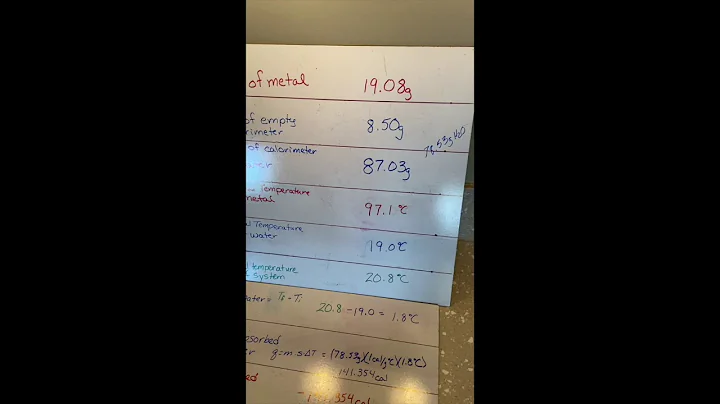 of metal 19.08g
of empty
rimeter 8.50g
78.53g H2O
of calorimeter
87.03g
Temperature
metal 97.1°C
Temperature
water 19.0°C
temperature
system 20.8°C
water = Tf - Ti 20.8 - 19.0 = 1.8°C
q = m·s·ΔT = (78.53g)(1cal/g°C)(1.8°C)
141.354 cal